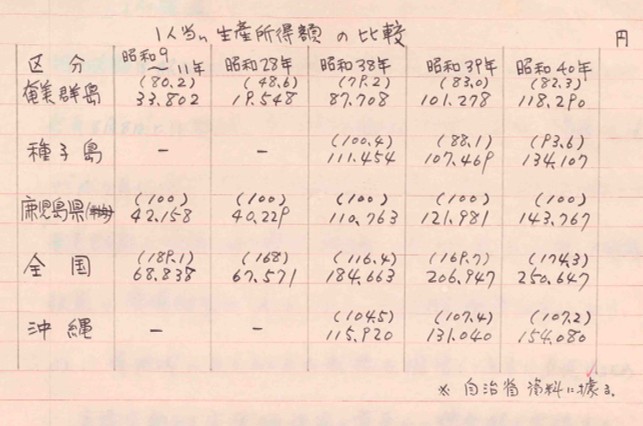 1人当り生産所得額の比較
円
区分 昭和9〜11年 昭和28年 昭和38年 昭和39年 昭和40年
(80.2) (48.6) (79.2) (83.0) (82.3)
奄美群島 33.802 19.548 87.708 101.278 118.290
(100.4) (88.1) (93.6)
種子島 － － 111.454 107.469 134.107
(100) (100) (100) (100) (100)
鹿児島県 42.158 40.229 110.763 121.981 143.767
(189.1) (168) (116.4) (169.7) (174.3)
全国 68.838 67.571 184.663 206.947 250.647
(104.5) (107.4) (107.2)
沖縄 － － 115.920 131.040 154.080
※ 自治省資料に據る。